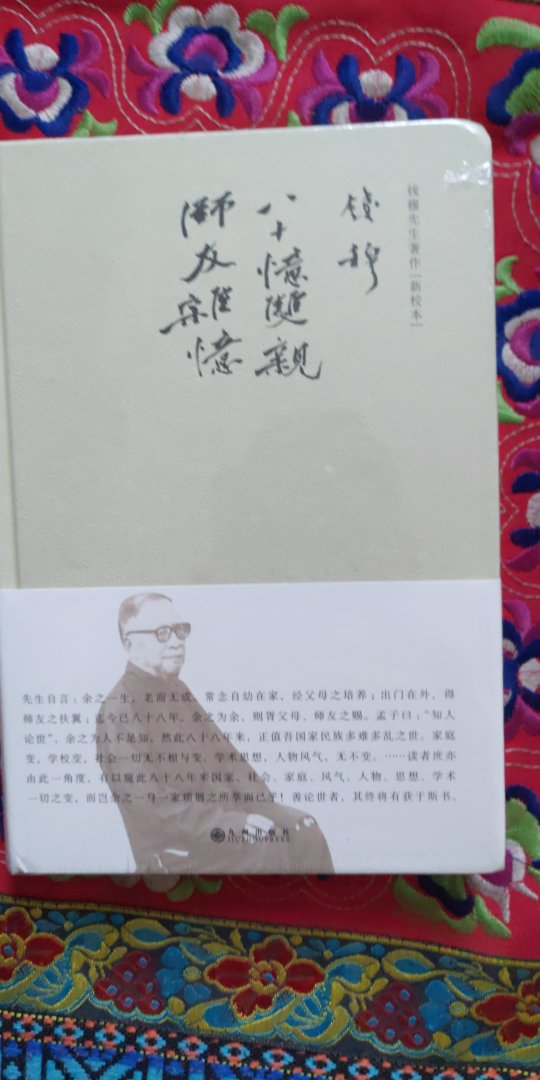 钱穆先生著作［新校本］
錢穆
八十憶雙親
師友雜憶
先生自言：余之一生，老而无成。常念自幼在家，经父母之培养；出门在外，得
师友之扶翼；迄今已八十八年。余之为余，则胥父母、师友之赐。孟子曰：“知人
论世”，余之为人不足知，然此八十八年来，正值吾国家民族多难多乱之世。家庭
变，学校变，社会一切无不相与变。学术思想，人物风气，无不变。……读者庶亦
由此一角度，有以窥此八十八年来国家、社会、家庭、风气、人物、思想、学术
一切之变，而岂余之一身一家琐屑之所萃而已乎！善论世者，其终将有获于斯书。
九州出版社
JIUZHOUPRESS